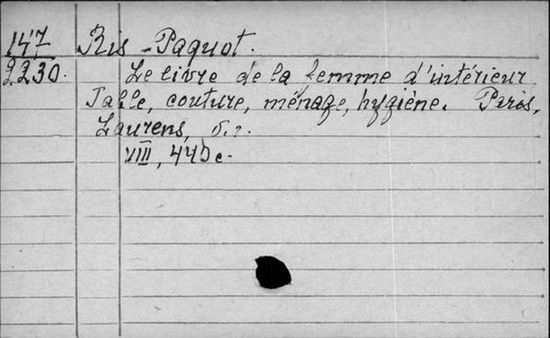 147 Ris-Paquot.
2230. Le livre de la femme d'intérieur
Table, couture, ménage, hygiène. Paris,
Laurens, s.a.
VIII, 440 c.